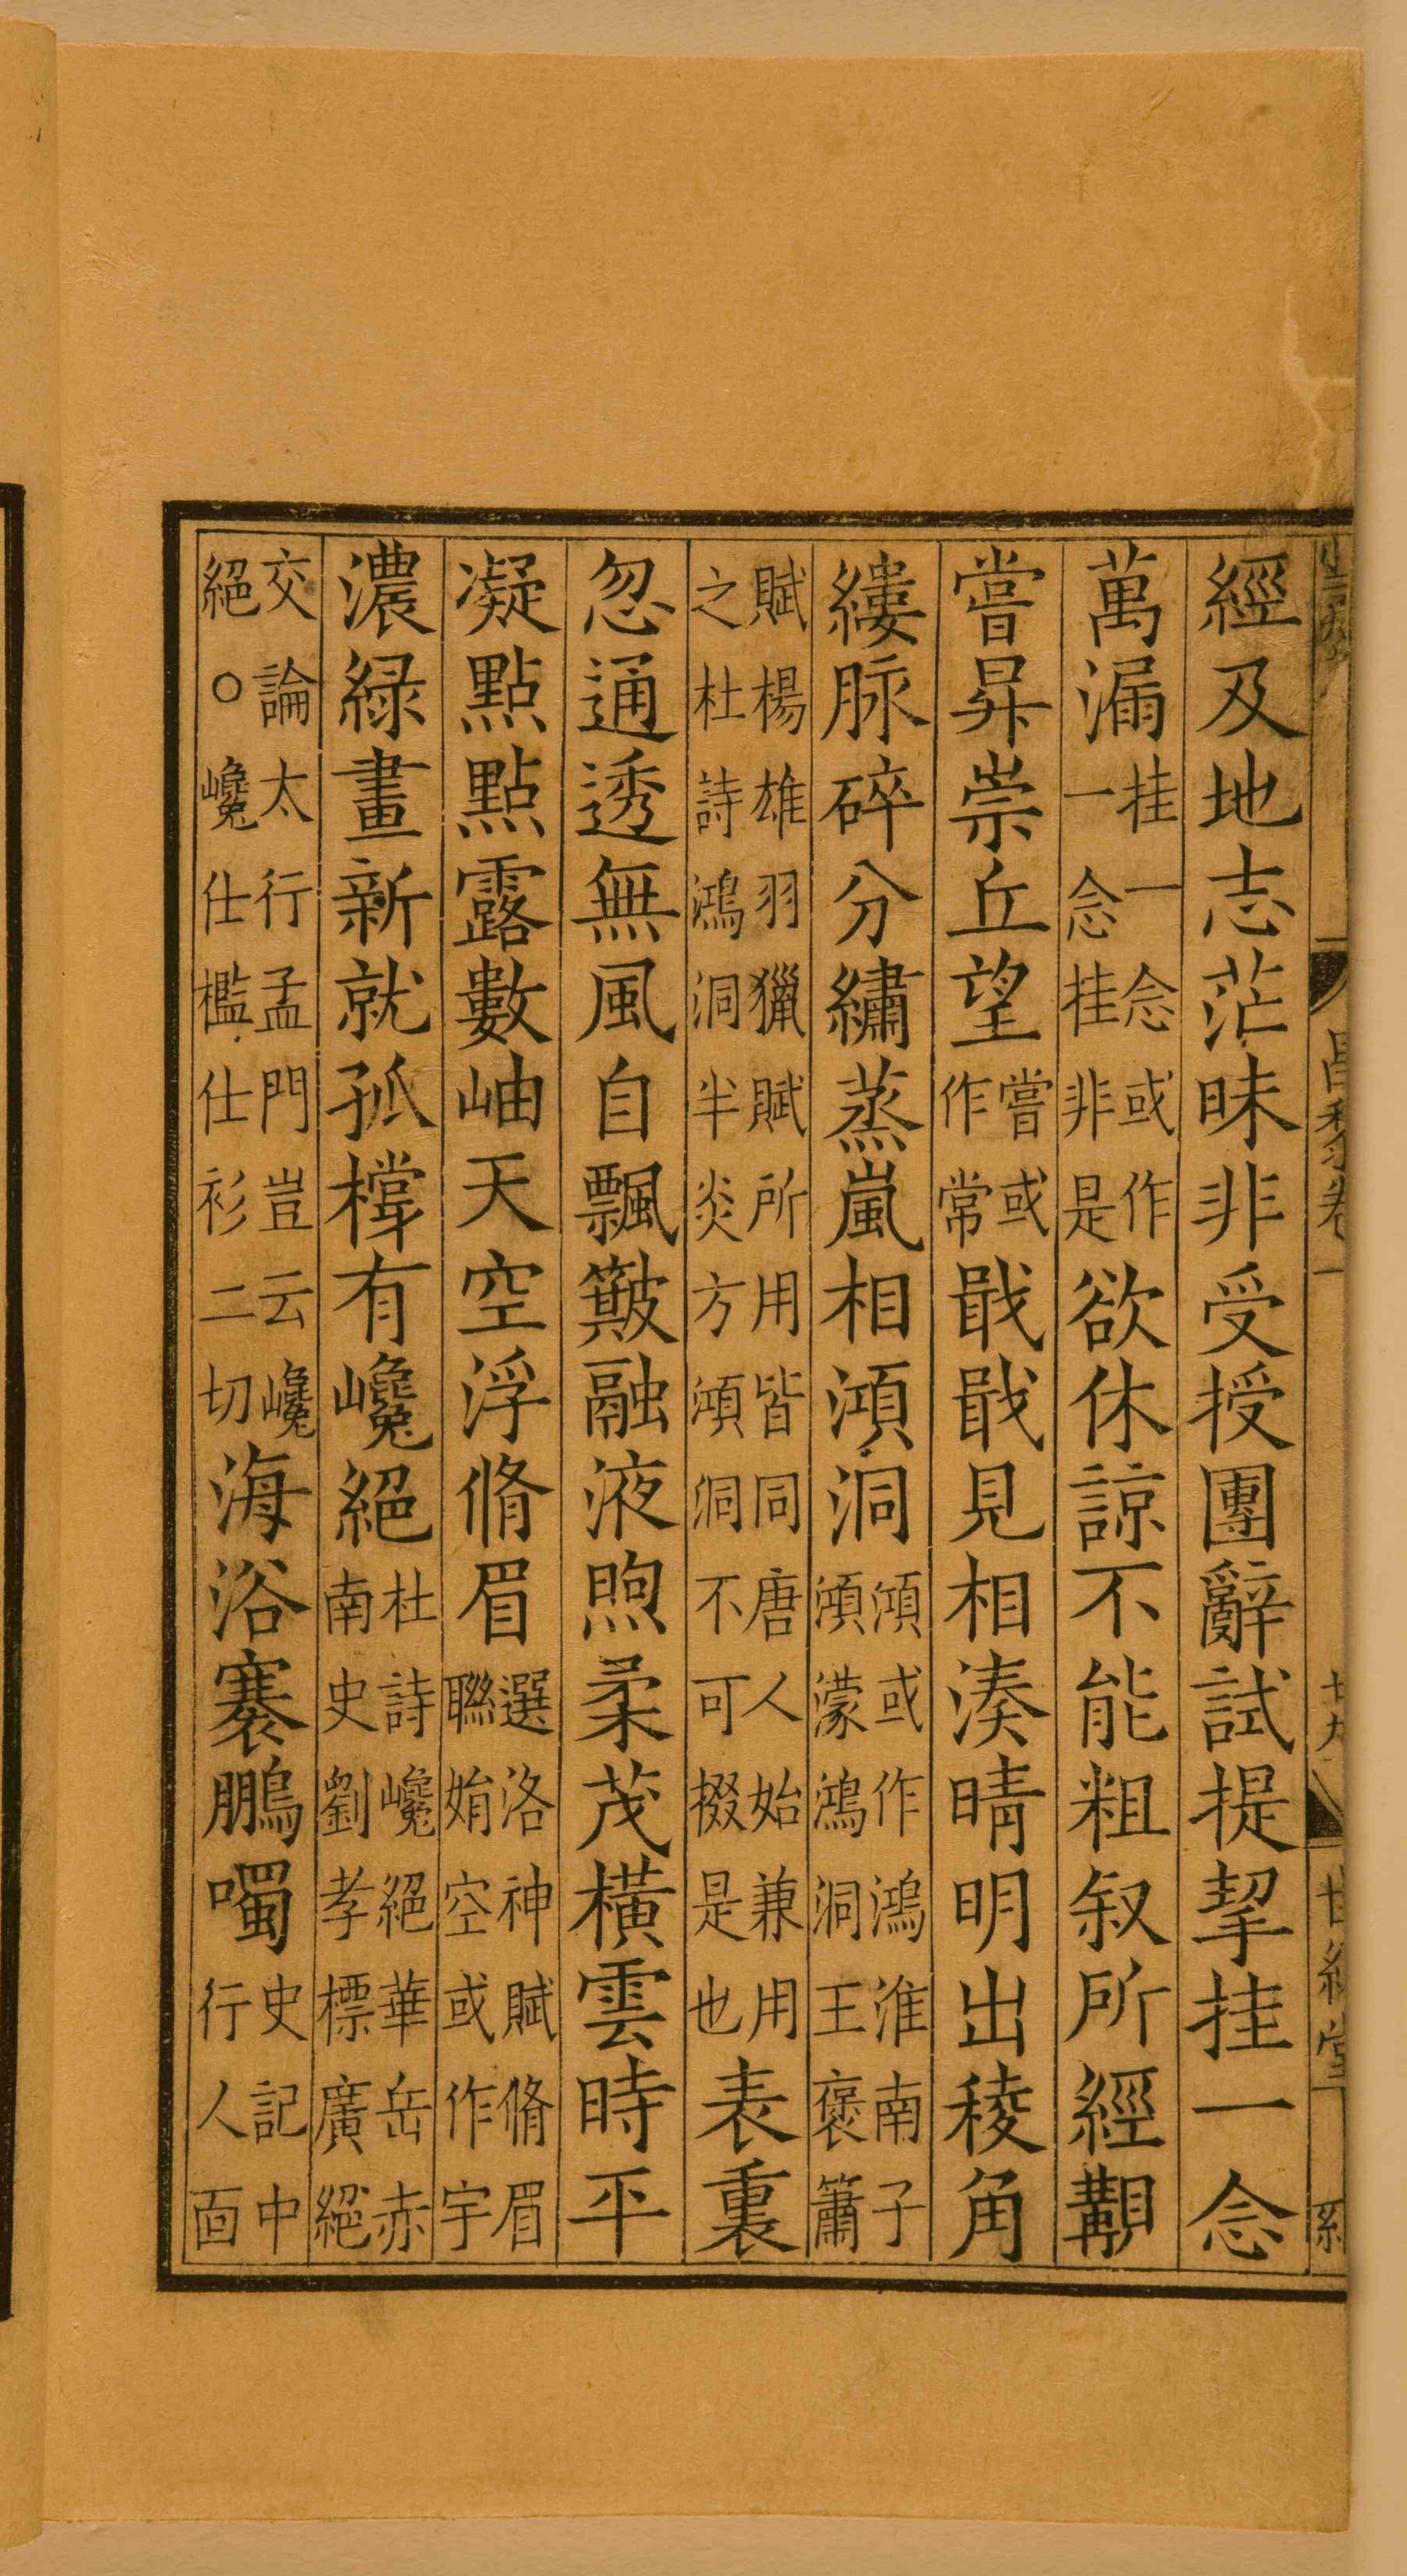 經及地志茫昧非受授團辭試提挈挂一念
萬漏挂一念或作一念挂非是欲休諒不能粗叙所經覯
嘗昇崇丘望嘗或作常戢戢見相湊晴明出稜角
縷脉碎分繡蒸嵐相澒洞澒或作鴻淮南子澒濛鴻洞王褒簫
賦楊雄羽獵賦所用皆同唐人始兼用之杜詩鴻洞半炎方澒洞不可掇是也表裏
忽通透無風自飄簸融液煦柔茂橫雲時平
凝點點露數岫天空浮脩眉選洛神賦脩眉聯娟空或作宇
濃綠畫新就孤橕有巉絕杜詩巉絕華岳赤南史劉孝標廣絕
交論太行孟門豈云巉絕○巉仕檻仕衫二切海浴褰鵬噣史記中行人面
昌黎卷一
廿九